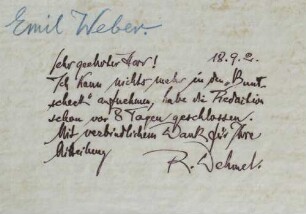 Emil Weber.
Sehr geehrter Herr! 18.9.
Ich kann nichts mehr in den „Bunt-
scheck" aufnehmen, habe die Redaction
schon vor 8 Tagen geschlossen.
Mit verbindlichem Dank für Ihre
Mitteilung
R. Dehmel.